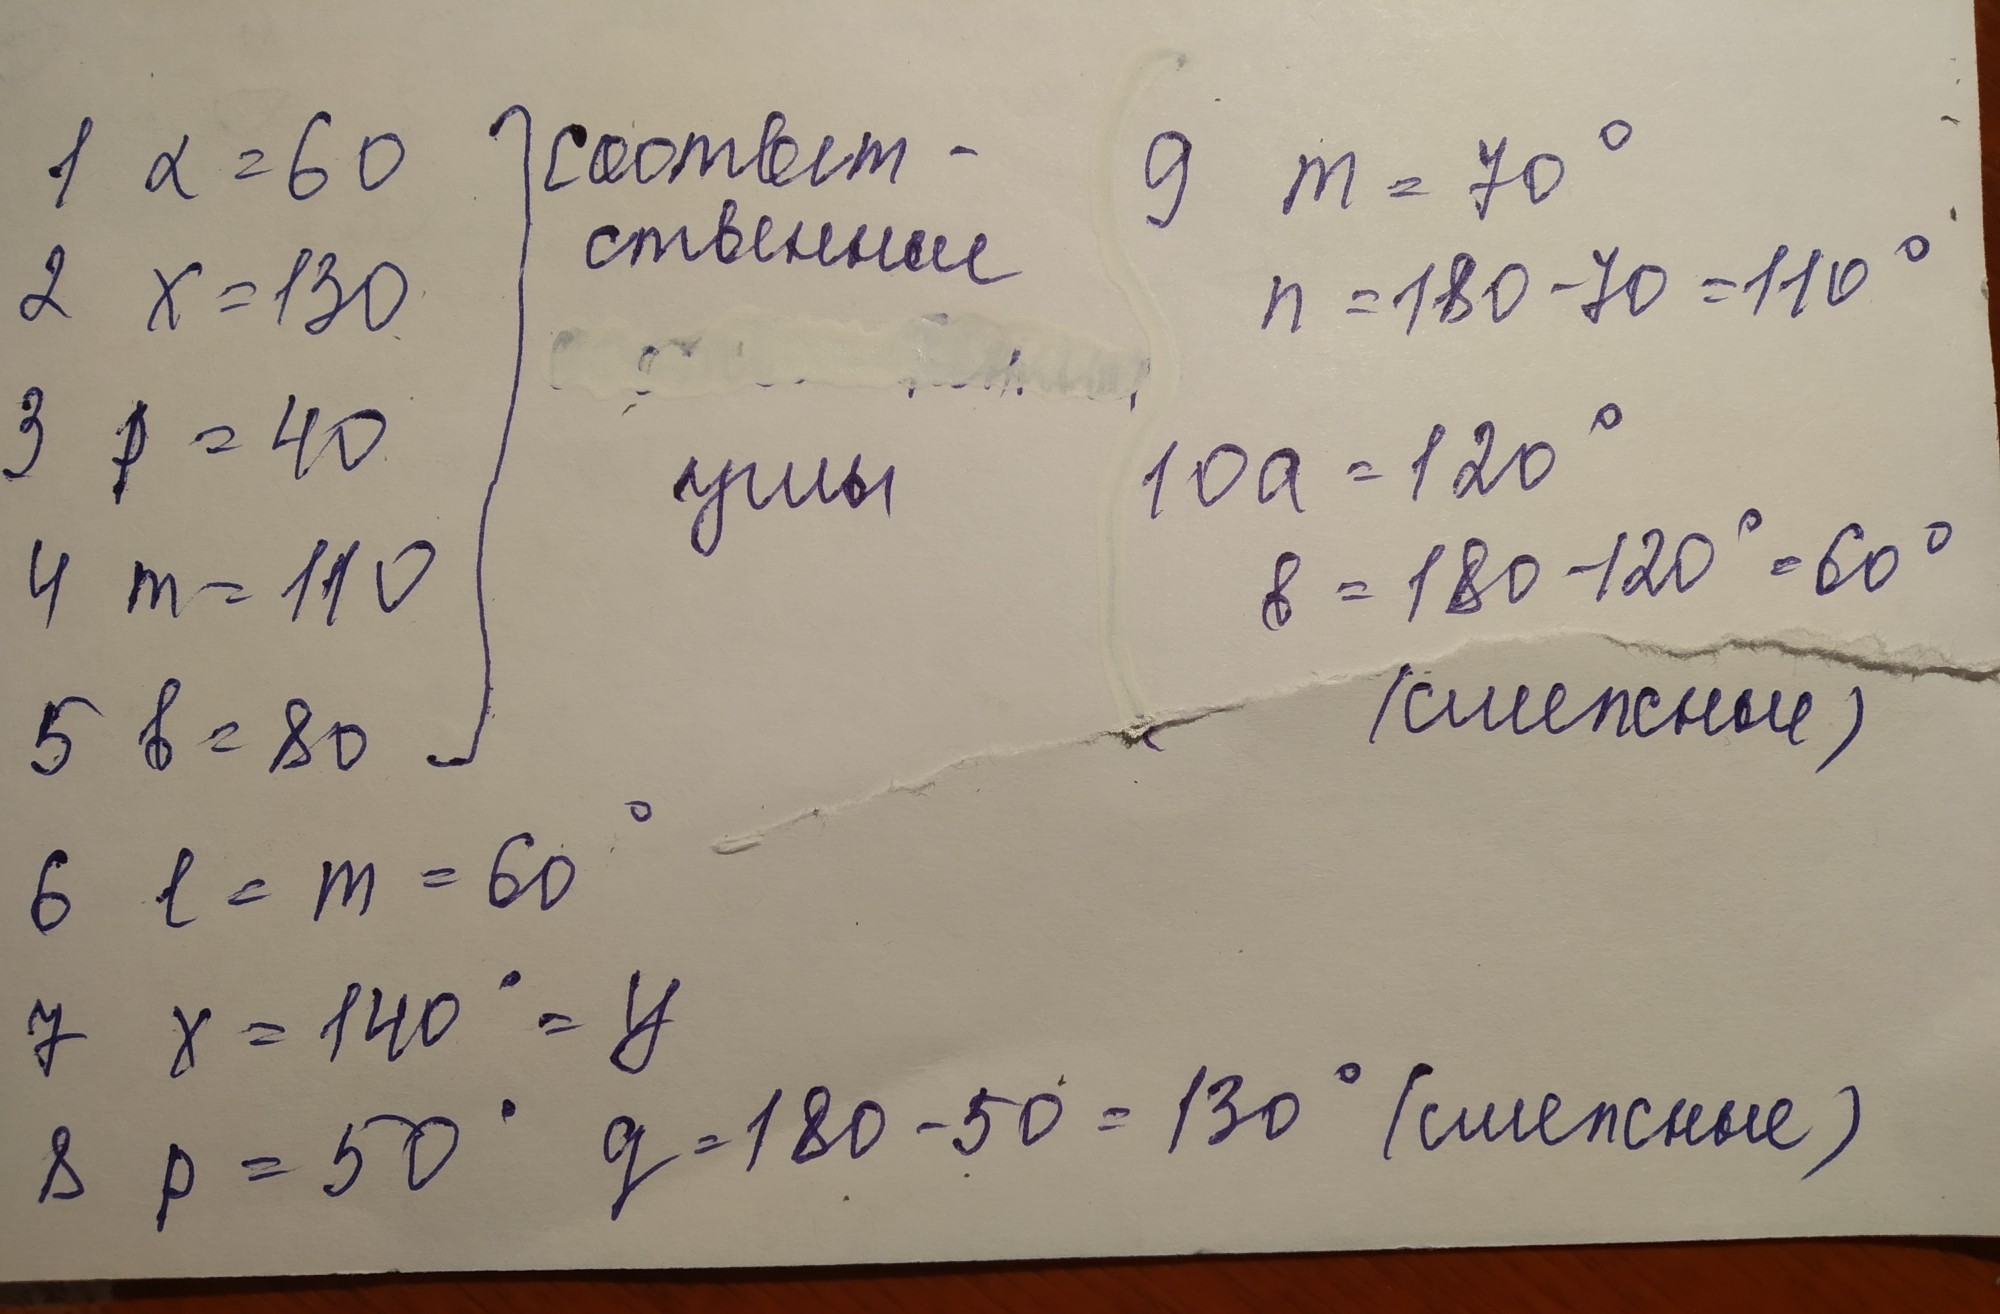 1 α = 60
2 x = 130
3 p = 40
4 m = 110
5 b = 80
соответ-
ственные
углы
6 l = m = 60°
7 x = 140° = y
8 p = 50° q = 180 - 50 = 130° (смежные)
9 m = 70°
n = 180 - 70 = 110°
10 a = 120°
b = 180 - 120° = 60°
(смежные)